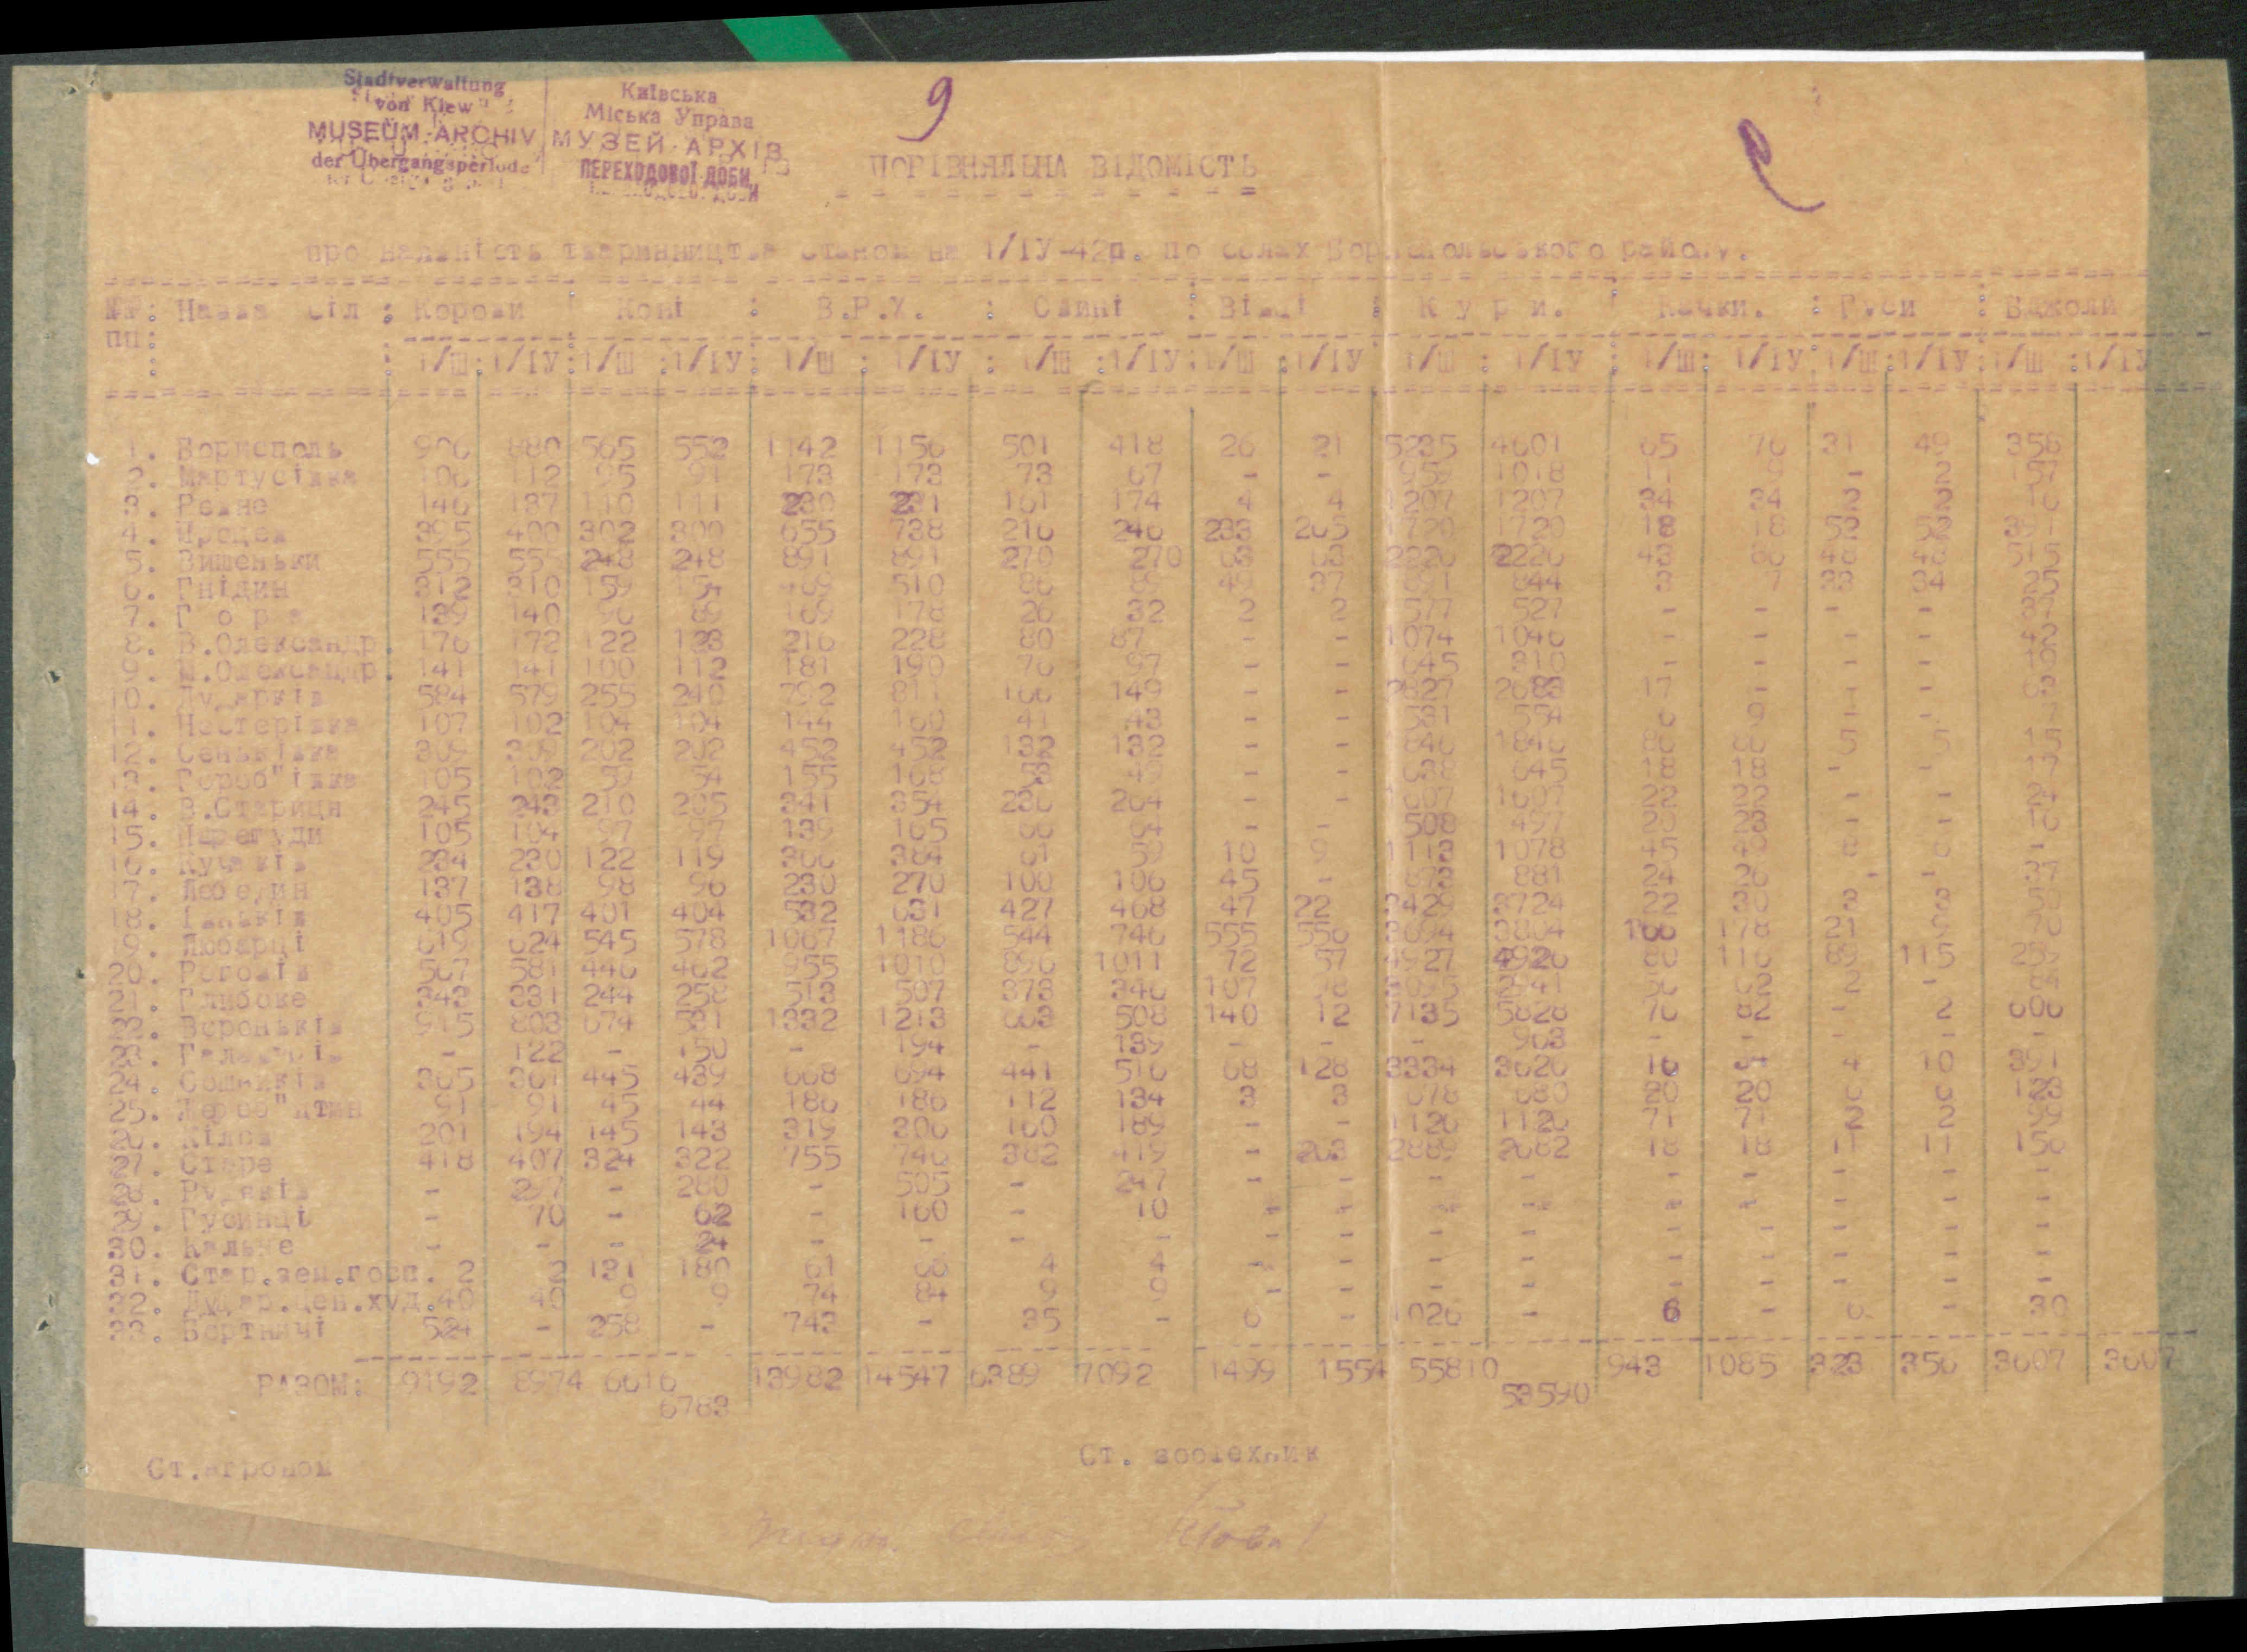 Stadtverwaltung
von Kiew
MUSEUM-ARCHIV
der Übergangsperiode
Київська
Міська Управа
МУЗЕЙ-АРХІВ
ПЕРЕХОДОВОЇ ДОБИ
9
ПОРІВНЯЛЬНА ВІДОМІСТЬ
про наявність тваринництва станом на 1/ІУ-42р. по селах Бориспольського району.
№№: Назва сіл : Корови : Коні : В.Р.Х. : Свині : Вівці : К у р и. : Качки. : Гуси : Бджоли
пп:
: 1/Ш:1/ІУ:1/Ш :1/ІУ: 1/Ш : 1/ІУ : 1/Ш :1/ІУ:1/Ш :1/ІУ: 1/Ш : 1/ІУ : 1/Ш: 1/ІУ:1/Ш:1/ІУ:1/Ш :1/ІУ
1. Борисполь 906 880 565 552 1142 1156 501 418 26 21 5235 4601 65 76 31 49 358
2. Мартусівка 106 112 95 91 173 173 73 67 - - 959 1018 11 9 - 2 157
3. Ревне 146 137 110 111 230 231 161 174 4 4 1207 1207 34 34 2 2 16
4. Процев 395 400 302 300 655 738 216 246 233 265 1720 1720 18 18 52 52 391
5. Вишеньки 555 555 248 248 891 891 270 270 63 63 2226 2226 43 86 48 48 515
6. Гнідин 312 310 159 154 469 510 86 49 37 844 3 7 33 34 25
7. Г о р а 139 140 96 89 169 178 26 32 2 2 577 527 - - - - 37
8. В.Олександр. 176 172 122 123 216 228 80 87 - - 1074 1046 - - - - 42
9. М.Олександр. 141 141 100 112 181 190 76 97 - - 645 810 - - - - 19
10. Дударків 584 579 255 240 792 811 166 149 - - 2827 2683 17 - - - 63
11. Нестерівка 107 102 104 104 144 160 41 43 - - 531 554 6 9 - -
12. Сеньківка 309 309 202 202 452 452 132 132 - - 1846 1846 86 86 5 5 15
13. Гороб"ївка 105 102 59 54 155 168 53 49 - - 638 645 18 18 - - 17
14. В.Стариця 245 243 210 205 341 354 236 264 - - 1607 1607 22 22 - - 24
15. Перегуди 105 104 97 97 139 165 66 64 - - 508 497 20 23 - - 16
16. Кучаків 234 230 122 119 366 384 61 59 10 9 1113 1078 45 49 6 6 -
17. Лебедин 137 138 98 96 230 270 100 106 45 - 873 881 24 26 - - 37
18. Іваньків 405 417 401 404 532 631 427 468 47 22 3429 3724 22 30 3 3 50
19. Любарці 619 624 545 578 1067 1186 544 746 555 556 3694 3804 166 178 21 9 70
20. Рогозів 567 581 446 462 955 1010 896 1011 72 57 4927 4926 80 116 89 115 259
21. Глибоке 343 331 244 258 513 507 373 346 107 78 3095 2541 56 62 2 - 64
22. Вороньків 915 803 674 531 1332 1213 663 508 140 12 7135 5828 76 82 - 2 606
23. - 122 - 150 - 194 - 139 - - - 963 - - - - -
24. Сошників 365 361 445 439 668 694 441 516 68 128 3334 3626 16 34 4 10 391
25. Жереб"ятин 91 91 45 44 186 186 112 134 3 3 678 680 20 20 6 6 123
26. Кілов 201 194 145 143 319 306 160 189 - - 1126 1126 71 71 2 2 99
27. Старе 418 407 324 322 755 746 382 419 - 263 2889 2682 18 18 11 11 156
28. Рудяків - 297 - 280 - 505 - 247 - - - - - - - - -
29. Гусинці - 70 - 62 - 160 - 10 - - - - - - - - -
30. Кальне - - - 24 - - - - - - - - - - - - -
31. Стар.зем.госп. 2 2 131 180 61 66 4 4 - - - - - - - - -
32. Дудар.цен.худ.40 40 9 9 74 84 9 9 - - - - - - - - -
33. Бортничі 524 - 258 - 743 - 35 - 6 - 1026 - 6 - 6 - 30
РАЗОМ: 9192 8974 6616 13982 14547 6389 7092 1499 1554 55810 943 1085 323 356 3607 3607
6783 53590
Ст.агроном
Ст. зоотехник